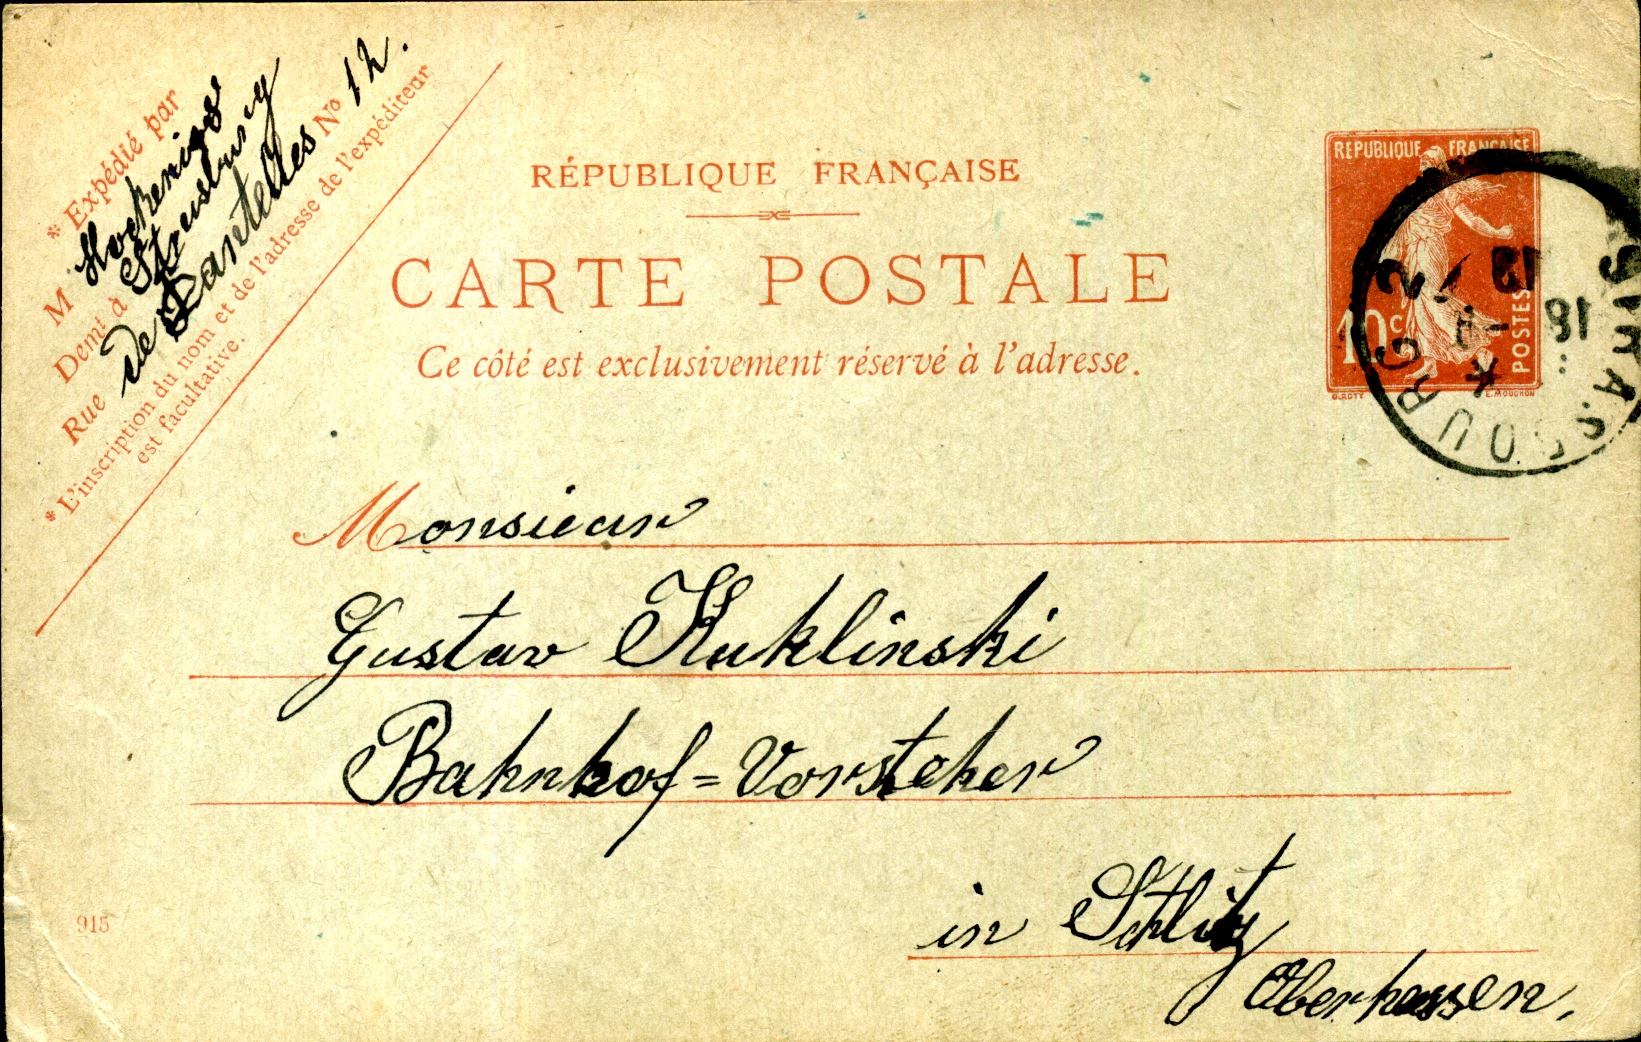 * Expédié par
M Hockenios
Demt à Strasburg
Rue de Dantelles No 12.
* L'inscription du nom et de l'adresse de l'expéditeur
est facultative.
RÉPUBLIQUE FRANÇAISE
CARTE POSTALE
Ce côté est exclusivement réservé à l'adresse.
REPUBLIQUE FRANÇAISE
10c
POSTES
O.ROTY E.MOUCHON
STRASBOURG 2
*
18
19
Monsieur
Gustav Kuklinski
Bahnhof=Vorsteher
in Schlitz
Oberhessen.
915